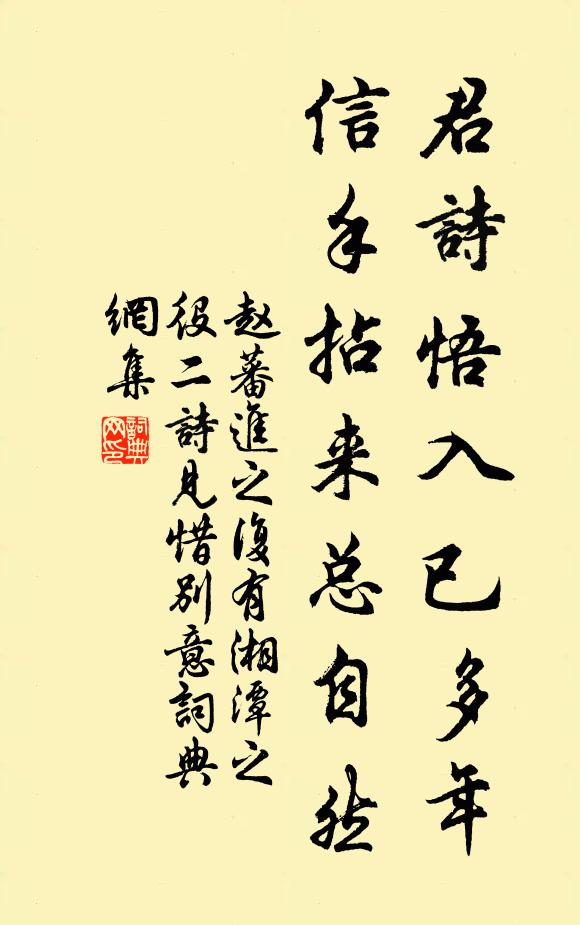 君詩悟入已多年
信手拈来总自然
赵蕃進之復有湘潭之
役二詩見惜别意詞典
網集
詞典
网印